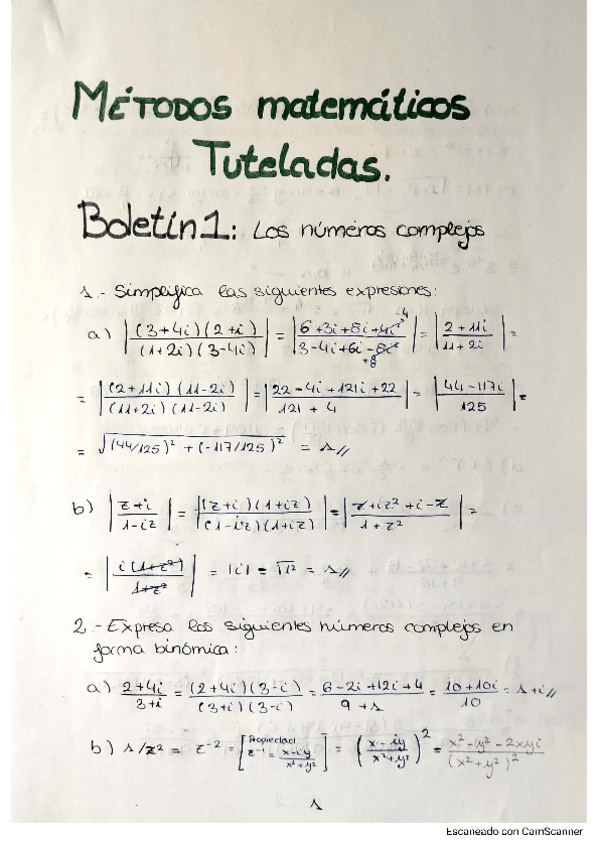 MÉTODOS matemáticos
Tuteladas.
Boletín 1: Los números complejos
1.- Simplifica las siguientes expresiones:
a) |(3+4i)(2+i) / (1+2i)(3-4i)| = |6+3i+8i+4i² -4 / 3-4i+6i-8i² +8| = |2+11i / 11+2i| =
= |(2+11i)(11-2i) / (11+2i)(11-2i)| = |22-4i+121i+22 / 121+4| = |44-117i / 125| =
= √((44/125)² + (-117/125)²) = 1//
b) |z+i / 1-iz| = |(z+i)(1+iz) / (1-iz)(1+iz)| = |z+iz²+i-z / 1+z²| =
= |i(1+z²) / 1+z²| = |i| = √1² = 1//
2.- Expresa los siguientes números complejos en
forma binómica:
a) 2+4i / 3+i = (2+4i)(3-i) / (3+i)(3-i) = 6-2i+12i+4 / 9+1 = 10+10i / 10 = 1+i//
b) 1/z² = z⁻² = [Propiedad z⁻¹ = x-iy / x²+y²] = (x-iy / x²+y²)² = x²-y²-2xyi / (x²+y²)²
1
Escaneado con CamScanner